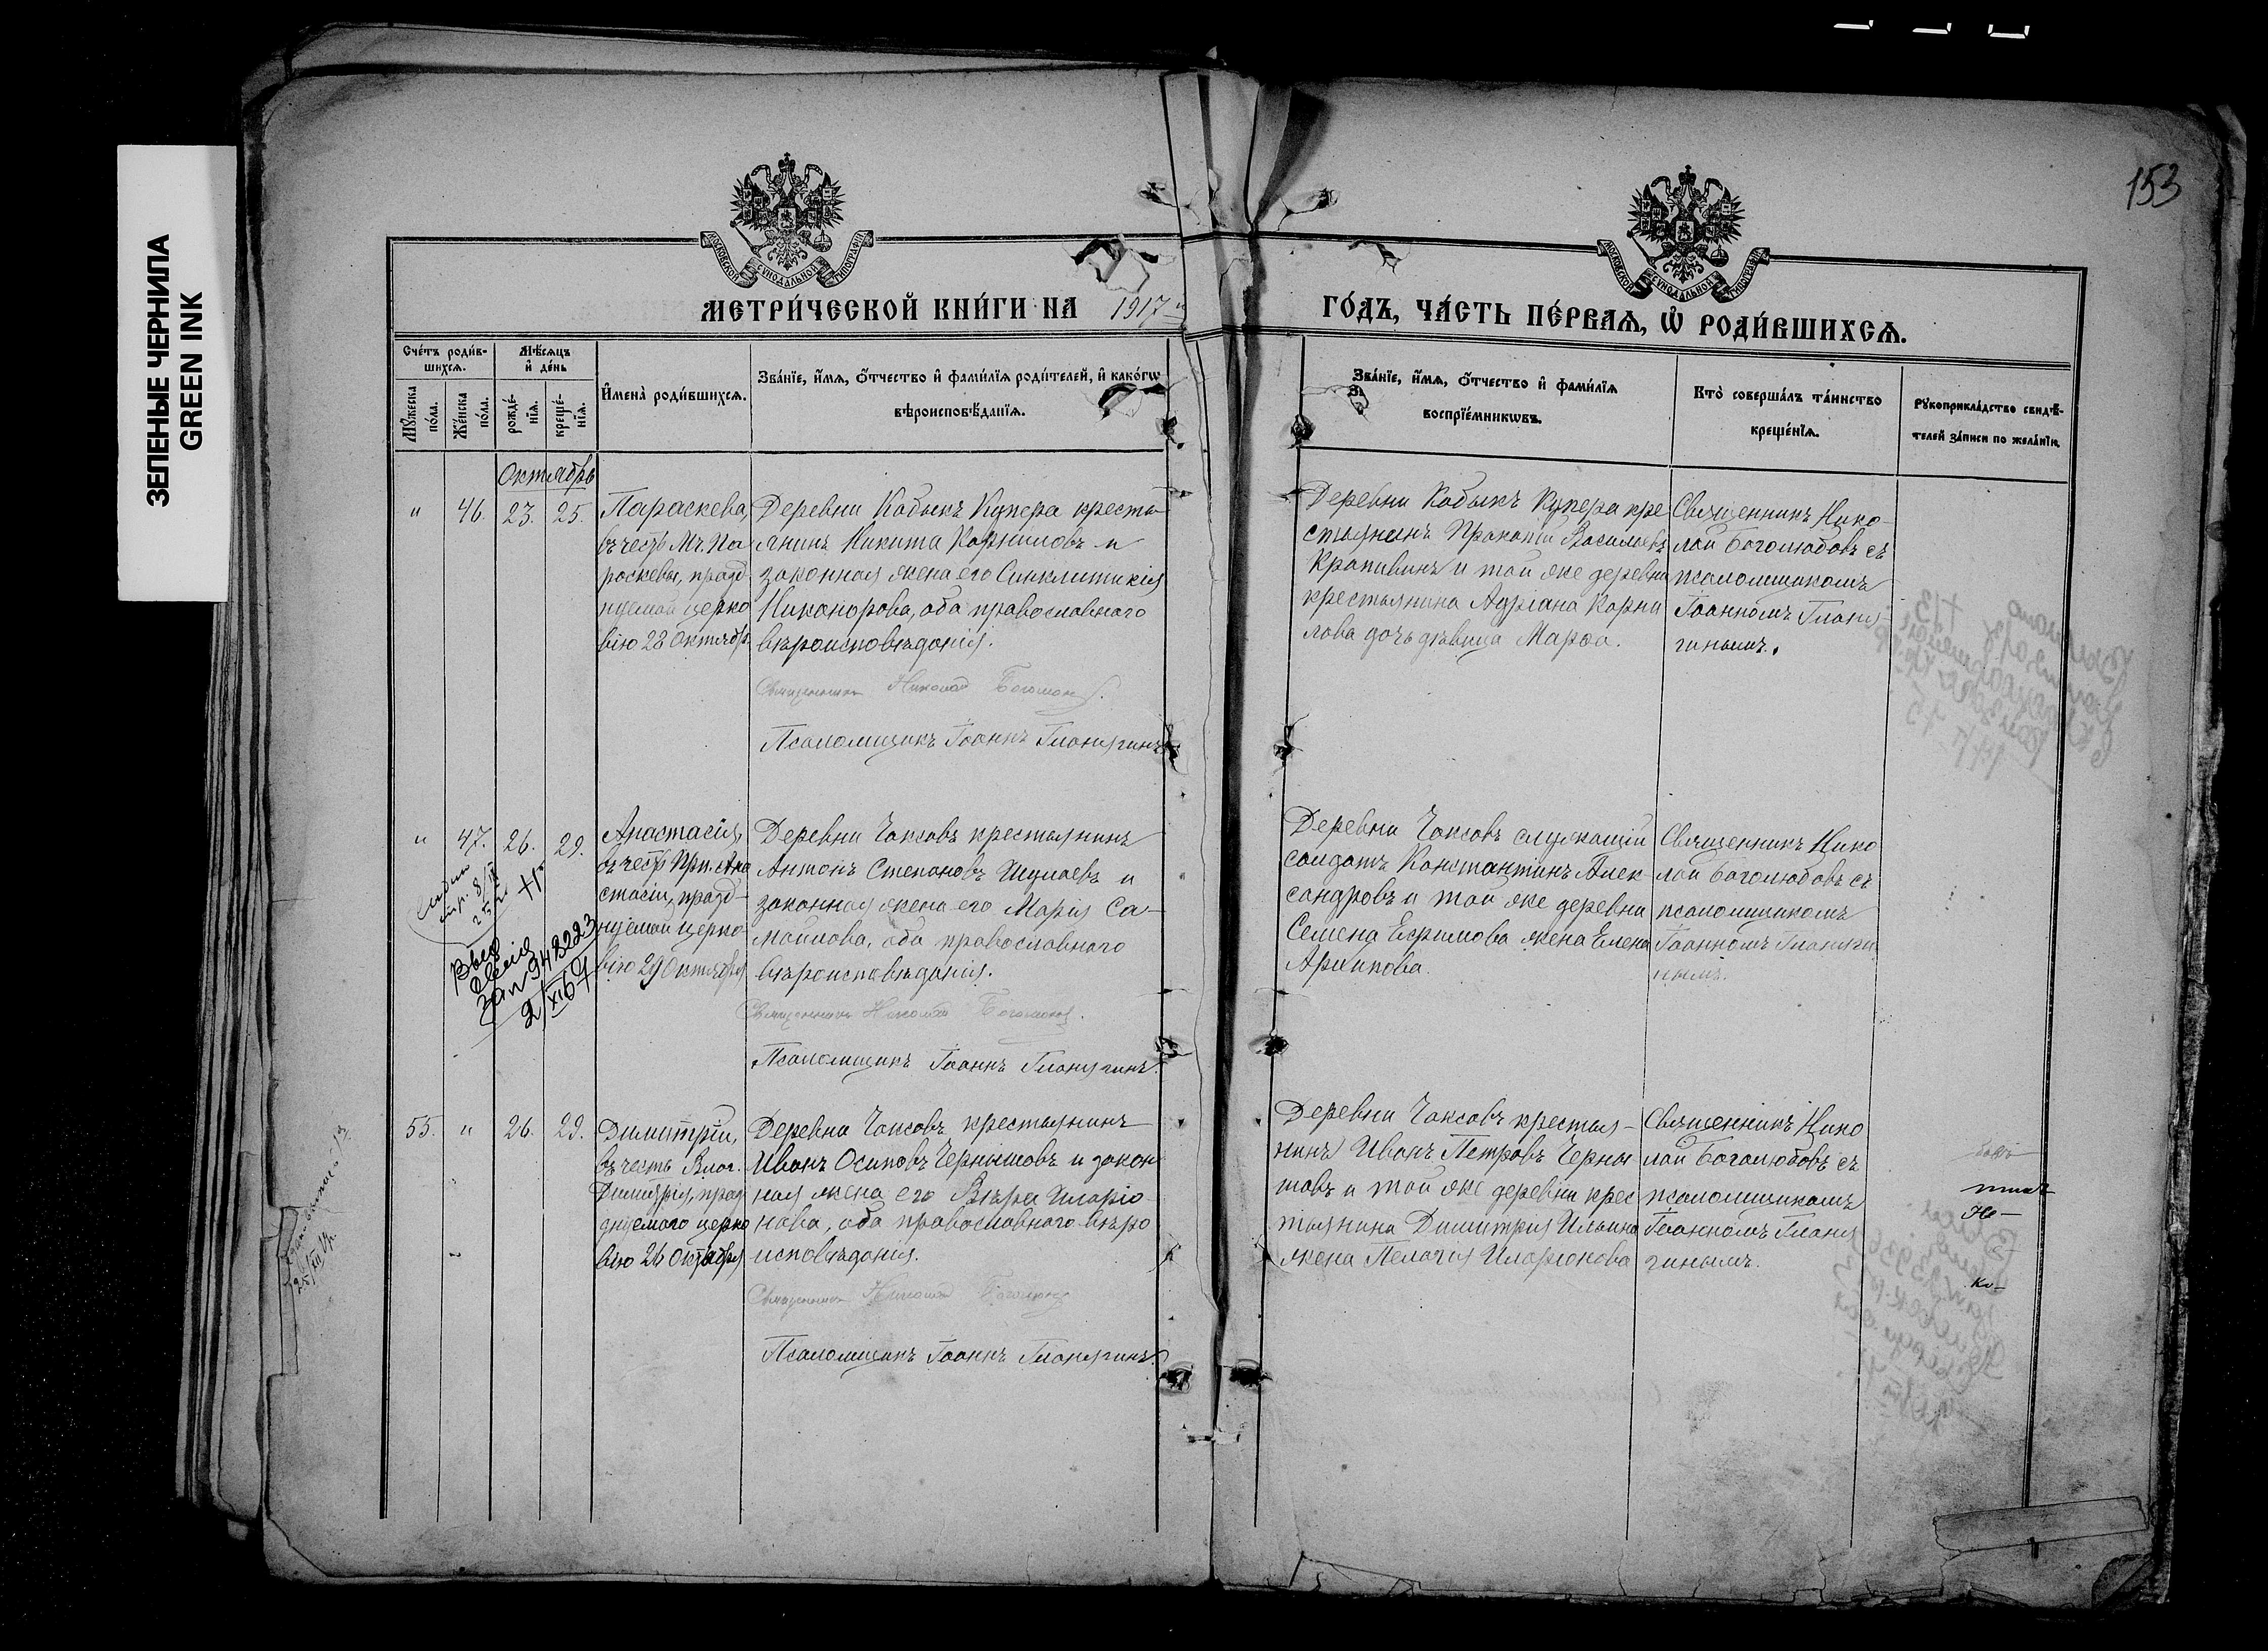 ЗЕЛЕНЫЕ ЧЕРНИЛА
GREEN INK
153
МОСКОВСКОЙ СѴНОДАЛЬНОЙ ТИПОГРАФІИ
МОСКОВСКОЙ СѴНОДАЛЬНОЙ ТИПОГРАФІИ
МЕТРИ́ЧЕСКОЙ КНИ́ГИ НА 1917
ГО́ДЪ, ЧА́СТЬ ПЕ́РВАѦ, Ѡ҆ РОДИ́ВШИХСѦ.
Сче́тъ роди́в-
шихсѧ.
Мꙋ́жеска
по́ла.
Же́нска
по́ла.
Мѣ́сѧцъ
и҆ де́нь
рожде́-
нїѧ.
креще́-
нїѧ.
И҆мена̀ роди́вшихсѧ.
Зва́нїе, и҆́мѧ, ѻ҆́тчество и҆ фами́лїѧ роди́телей, и҆ како́гѡ
вѣроисповѣ́данїѧ.
Зва́нїе, и҆́мѧ, ѻ҆́тчество и҆ фами́лїѧ
воспрїе́мникѡвъ.
Кто̀ соверша́лъ та́инство
креще́нїѧ.
Рꙋкоприкла́дство свидѣ́-
телей за́писи по жела́нїю.
Октябрь
" 46. 23. 25.
Параскева,
въ честь Мч. Па
раскевы, празд
нуемой церко
вію 28 Октябр.
Деревни Кабыкъ Купера кресть
янинъ Никита Корниловъ и
законная жена его Синклитикія
Никанорова, оба православнаго
вѣроисповѣданія.
Священникъ Николай Боголюбовъ.
Псаломщикъ Іоаннъ Гланягинъ
Деревни Кабыкъ Купера кре
стьянинъ Прокопій Васильевъ
Крапивинъ и той же деревни
крестьянина Адріана Корни
лова дочь дѣвица Марѳа.
Священникъ Нико-
лай Боголюбовъ съ
псаломщикомъ
Іоанномъ Гланя-
гинымъ.
" 47. 26. 29.
Анастасія,
въ честь Прп. Ана
стасіи, празд-
нуемой церко-
вію 29 Октября
Деревни Чаксовъ крестьянинъ
Антонъ Степановъ Шулаевъ и
законная жена его Марія Са-
мойлова, оба православнаго
вѣроисповѣданія.
Священникъ Николай Боголюбовъ.
Псаломщикъ Іоаннъ Гланягинъ.
Деревни Чаксовъ служащій
солдатъ Константинъ Алек
сандровъ и той же деревни
Семена Ефимова жена Елена
Архипова.
Священникъ Нико
лай Боголюбовъ съ
псаломщикомъ
Іоанномъ Гланяги
нымъ.
55. " 26. 29.
Димитрій,
въ честь Влмч.
Димитрія, празд
днуемаго церко
вію 26 Октября
Деревни Чаксовъ крестьянинъ
Иванъ Осиповъ Чернышовъ и закон
ная жена его Вѣра Иларіо-
нова, оба православнаго вѣро
исповѣданія.
Священникъ Николай Боголюбовъ
Псаломщикъ Іоаннъ Гланягинъ.
Деревни Чаксовъ крестья-
нинъ Иванъ Петровъ Черны
шовъ и той же деревни крес
тьянина Димитрія Ильина
жена Пелагія Иларіонова
Священникъ Нико
лай Боголюбовъ съ
псаломщикомъ
Іоанномъ Гланя
гинымъ.